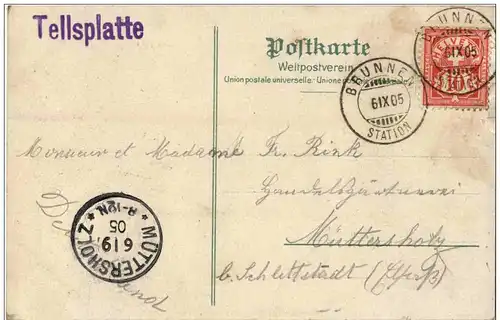 Tellsplatte
Postkarte
Weltpostverein
Union postale universelle. Unione
BRUNNEN
6 IX 05
STATION
BRUNNEN
6 IX 05
HELVETIA
10
Monsieur et Madame Fr. Rink
Handelsgärtnerei
Müttersholz
b. Schlettstadt (Elsaß)
MÜTTERSHOLZ
6/9
05
8-12N